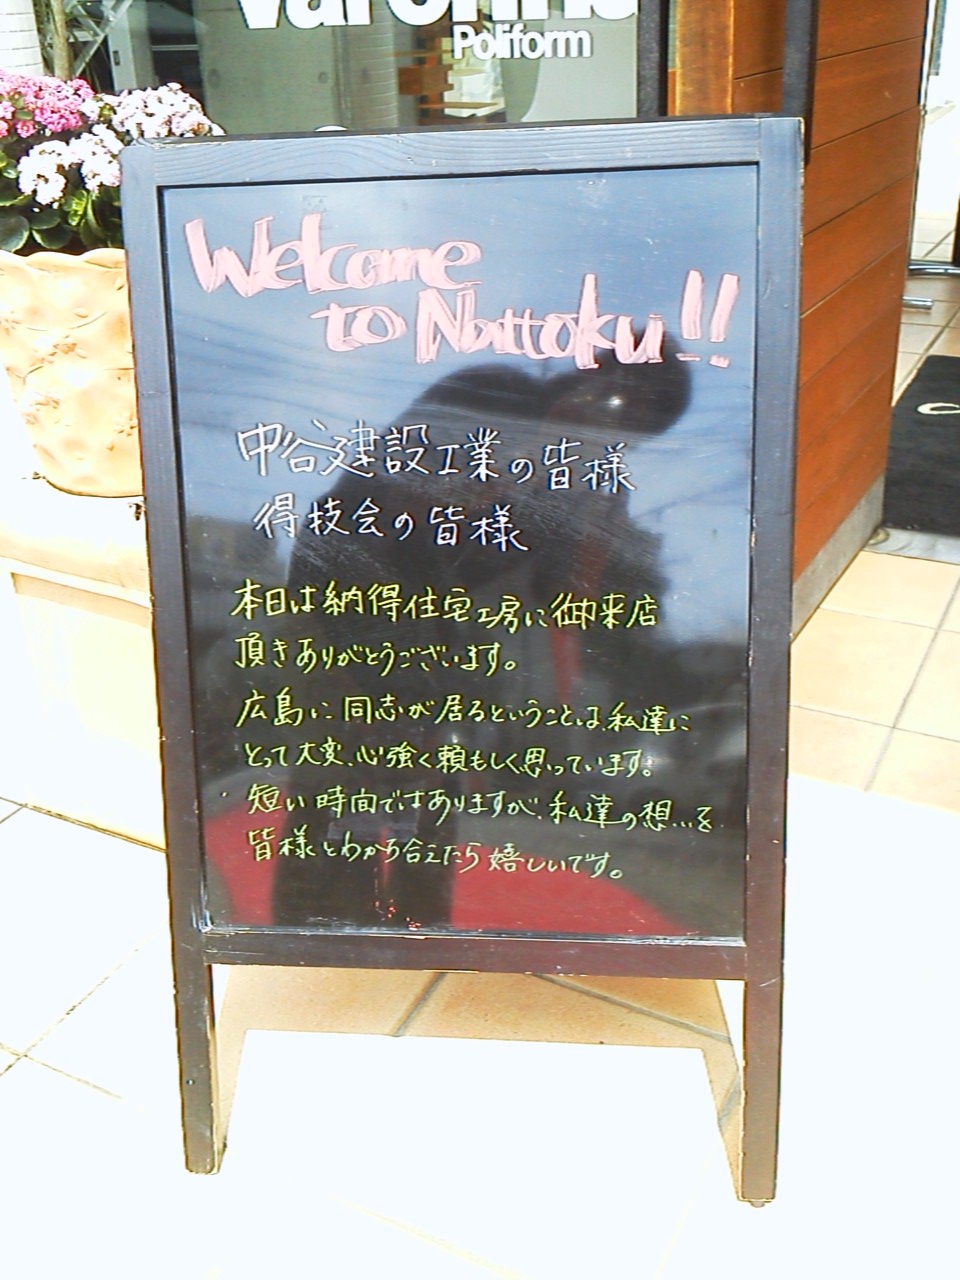 Poliform
Welcome
to Nattoku!!
中谷建設工業の皆様
得技会の皆様
本日は納得住宅工房に御来店
頂きありがとうございます。
広島に同志が居るということは、私達に
とって大変、心強く頼もしく思っています。
短い時間ではありますが、私達の想いを
皆様とわかち合えたら嬉しいです。